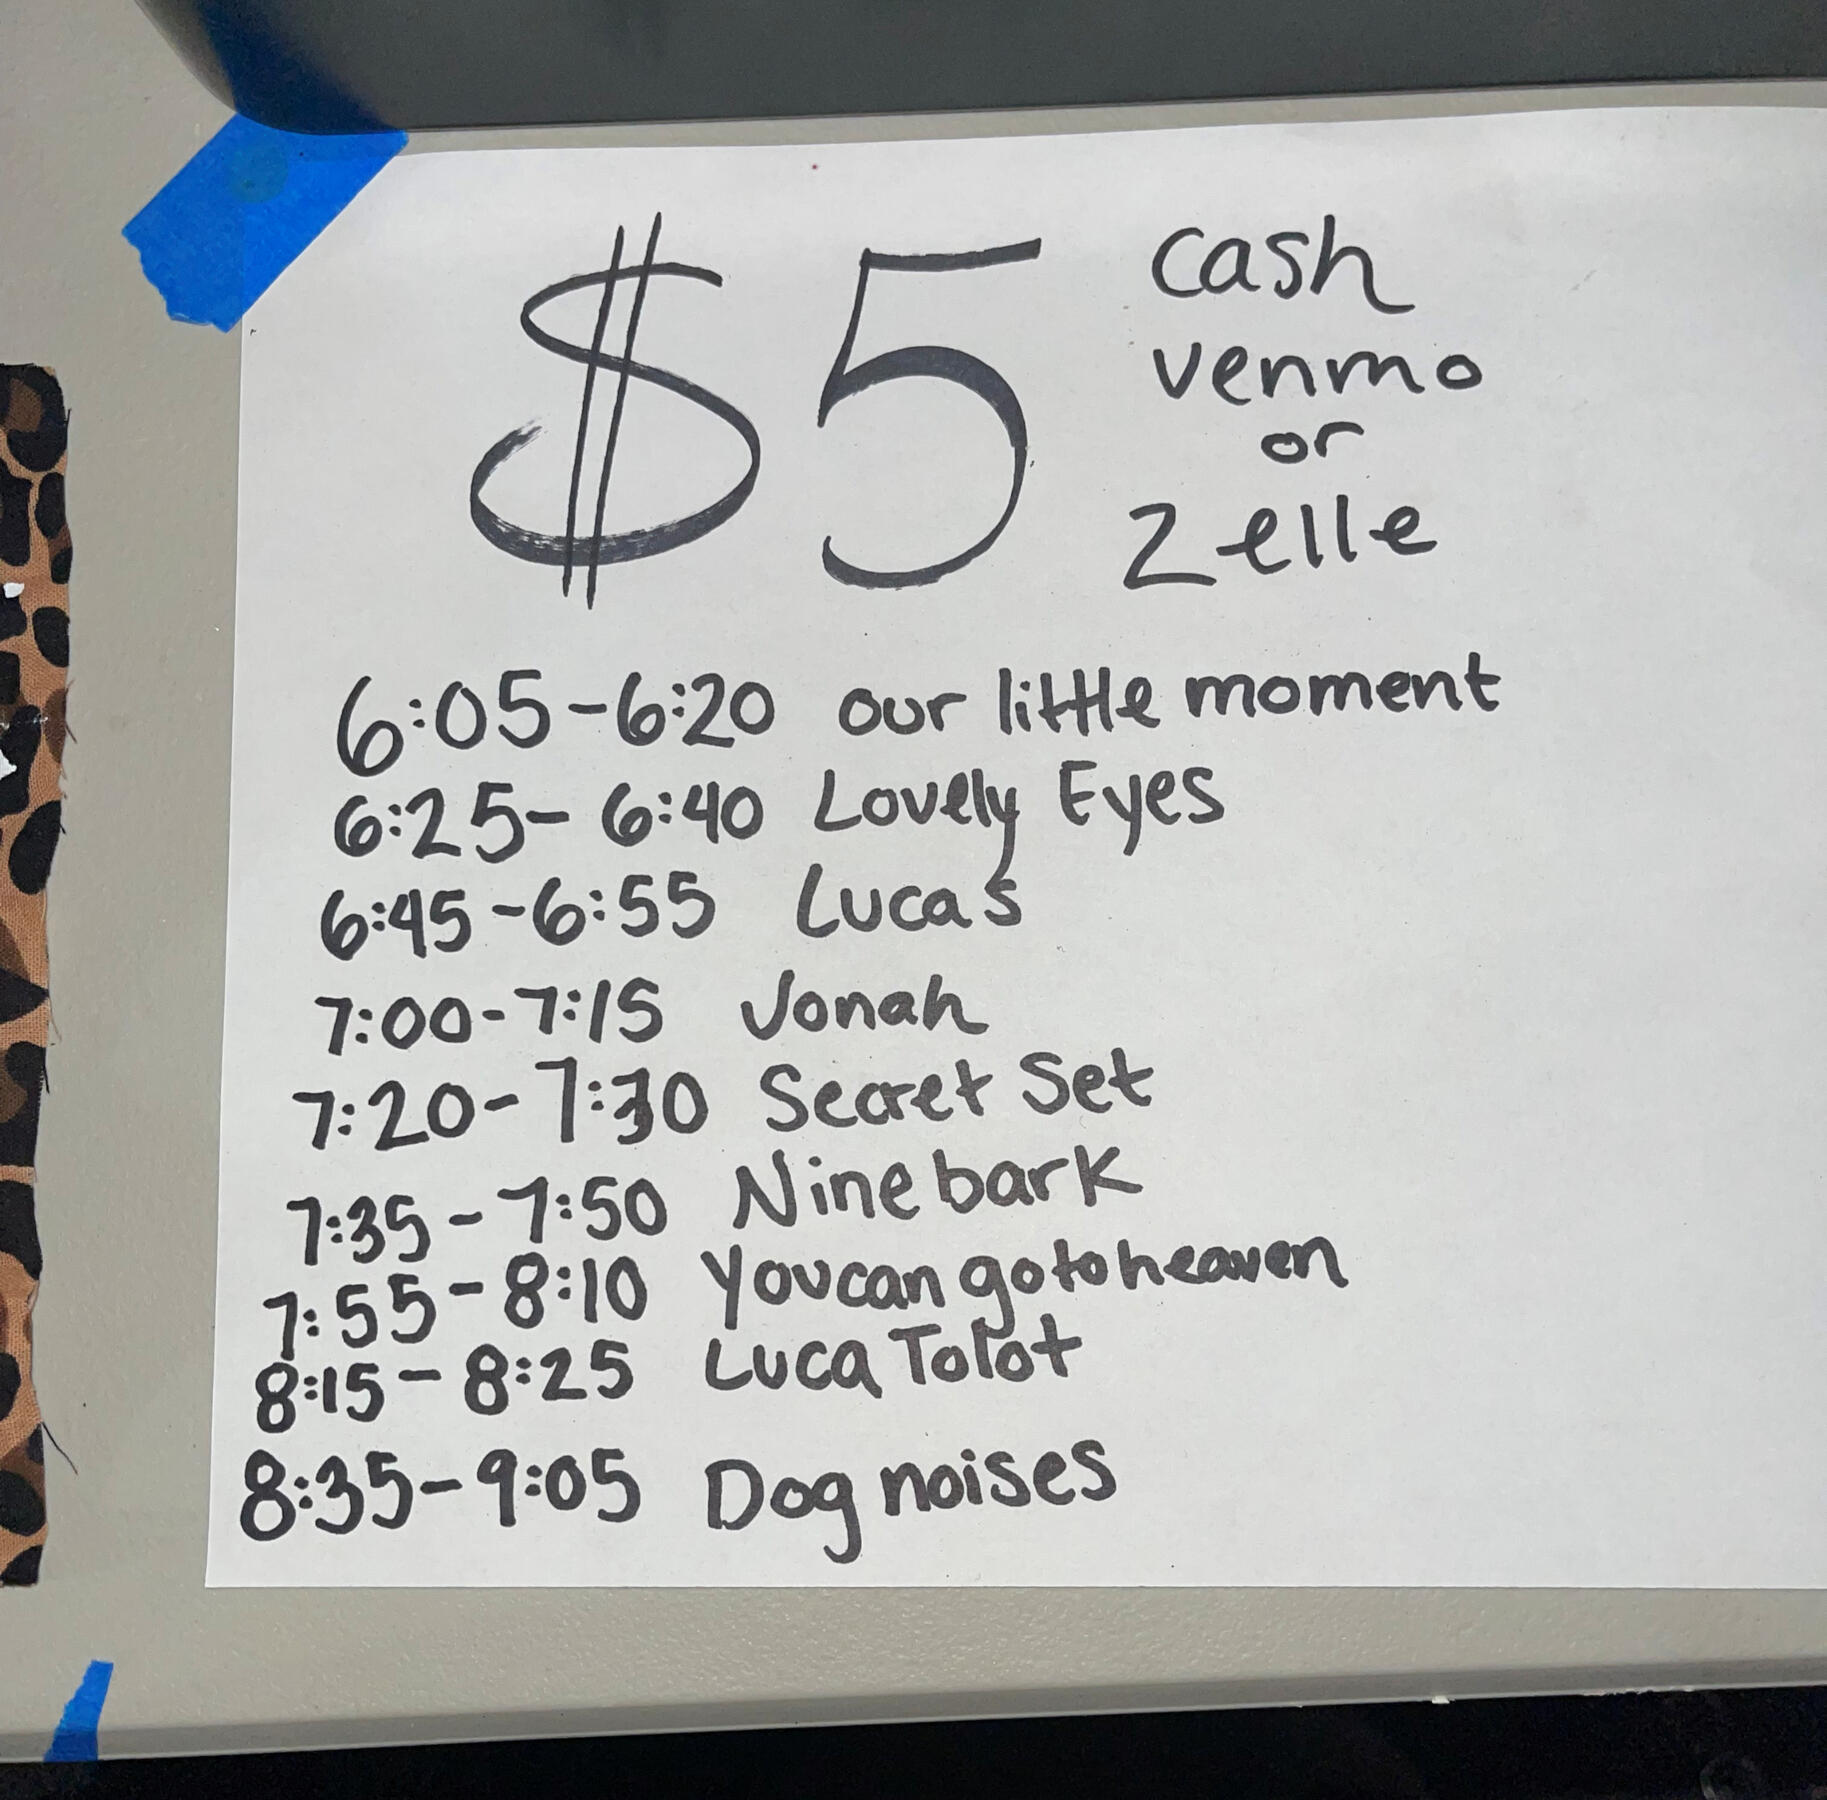 $5 cash
venmo
or
Zelle
6:05-6:20 our little moment
6:25-6:40 Lovely Eyes
6:45-6:55 Lucas
7:00-7:15 Jonah
7:20-7:30 Secret Set
7:35-7:50 Ninebark
7:55-8:10 Youcangotoheaven
8:15-8:25 Luca Tolot
8:35-9:05 Dog noises